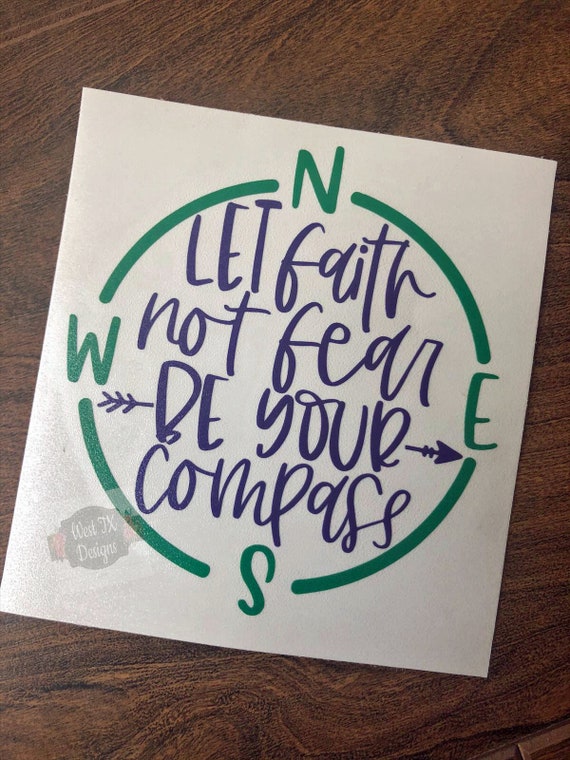 N
LET faith
not fear
W
E
BE YOUR
compass
West TX
Designs
S